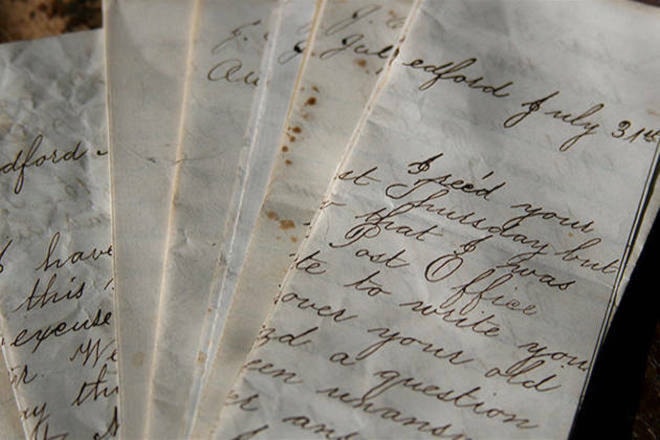 dford
have
this
excuse
We
Au
Jul
edford July 31st
I rec'd your
st Thursday but
that I was
Post Office
te to write you
over your old
a question
een unansw